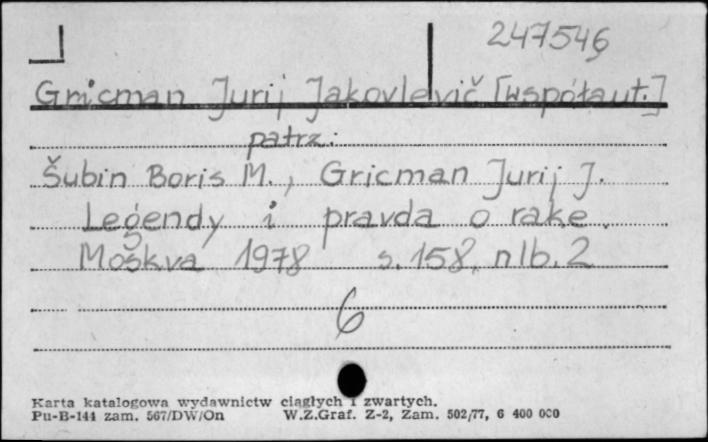 247546
Gricman Jurij Jakovlevič [współaut.]
patrz:
Šubin Boris M., Gricman Jurij J.
Legendy i pravda o rake.
Moskva 1978 s. 158, nlb. 2
6
Karta katalogowa wydawnictw ciągłych i zwartych.
Pu-B-144 zam. 567/DW/On W.Z.Graf. Z-2, Zam. 502/77, 6 400 000